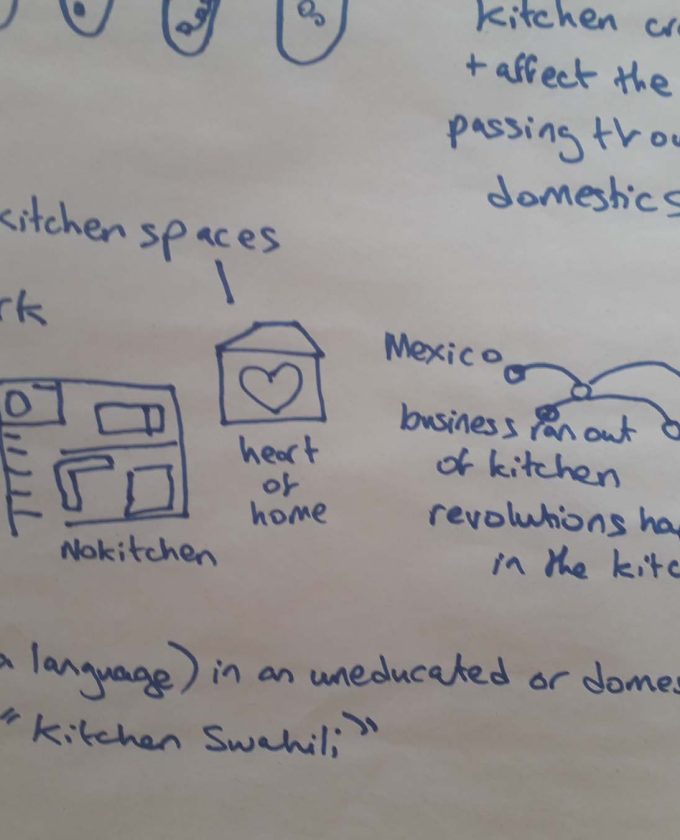 kitchen cr
+ affect the
passing trou
domestics
kitchen spaces
rk
Mexico
business ran out
of kitchen
revolutions ha
in the kitc
heart
of
home
Nokitchen
a language) in an uneducated or domes
"Kitchen Swahili"